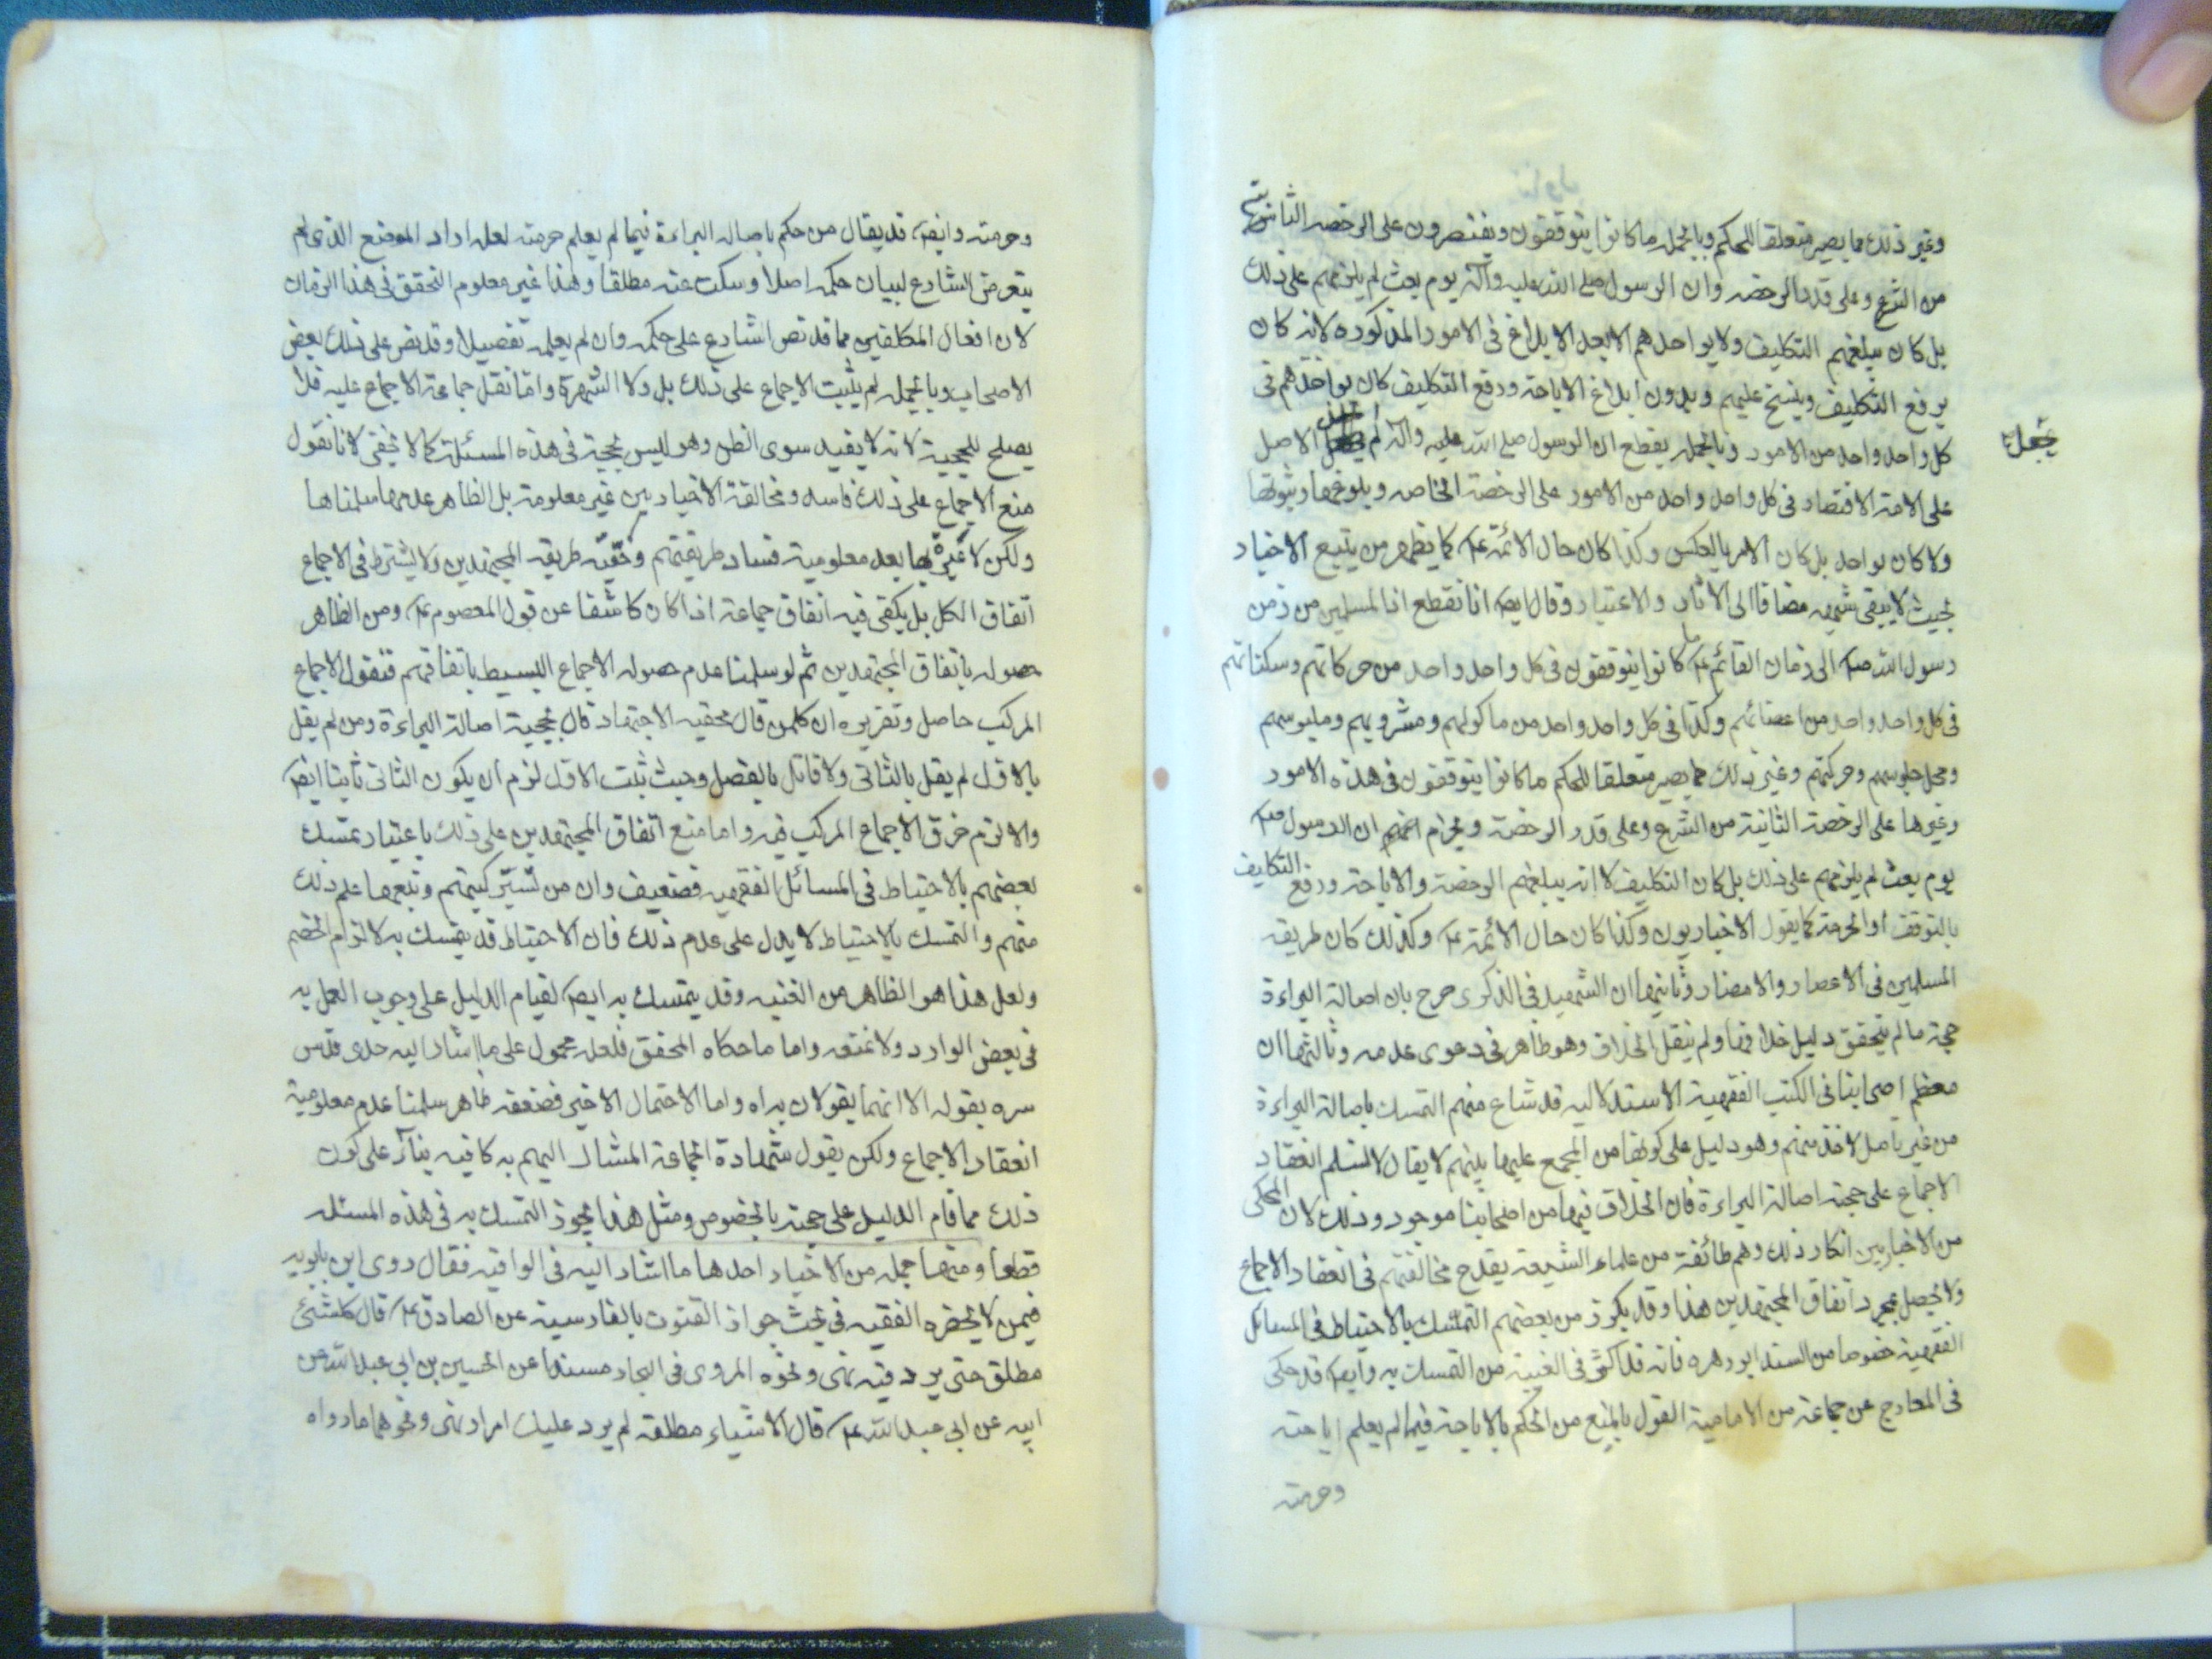 وغير ذلك مما يصير متعلقا للحكم وبالجمله ما كانوا يتوقفون ويقتصرون على الرخصه الثابتة
من الشرع وعلى قدر الرخصه وان الرسول صلى الله عليه وآله يوم بعث لم يلزمهم على ذلك
بل كان يبلغهم التكليف ولا يواحدهم الا بعد الابلاغ فى الامور المذكوره لانه كان
يرفع التكليف وينسخ عليهم وبدون ابلاغ الاباحة ورفع التكليف كان يواخذهم فى
كل واحد واحد من الامور وبالجمله يقطع ان الرسول صلى الله عليه وآله لم الاصل
يجعل
على الامة الاقتصار فى كل واحد واحد من الامور على الرخصة الخاصه وبلوغها وثبوتها
ولا كان يواحد بل كان الامر بالعكس وكذا كان حال الائمة ع كما يظهر من يتبع الاخبار
بحيث لا يبقى شبهه مضافا الى الاثار والاعتبار وقال ايضا انا نقطع ان المسلمين من زمن
رسول الله ص الى زمان القائم ع ما كانوا يتوقفون فى كل واحد واحد من حركاتهم وسكناتهم
فى كل واحد واحد من اعضائهم وكذا فى كل واحد واحد من ماكولهم ومشروبهم وملبوسهم
ومحل جلوسهم وحركتهم وغير ذلك مما يصير متعلقا للحكم ما كانوا يتوقفون فى هذه الامور
وغيرها على الرخصة الثانية من الشرع وعلى قدر الرخصة ويجزم ان الرسول ص
يوم بعث لم يلزمهم على ذلك بل كان التكليف لا انه يبلغهم الرخصة والاباحة ورفع التكليف
بالتوقف او الحرمة كما يقول الاخباريون وكذا كان حال الائمة ع وكذلك كان طريقه
المسلمين فى الاعصار والامصار وثانيها ان الشهيد فى الذكرى صرح بان اصالة البراءة
حجة ما لم يتحقق دليل خلافها ولم ينقل الخلاف وهو ظاهر فى دعوى عدمه وثالثها ان
معظم اصحابنا فى الكتب الفقهية الاستدلاليه قد شاع منهم التمسك باصالة البراءة
من غير تامل لاقد منهم وهو دليل على كونها من المجمع عليها بينهم لا يقال لا نسلم انعقاد
الاجماع على حجة اصالة البراءة فان الخلاف فيها من اصحابنا موجود وذلك لان المحكى
من الاخباريين انكار ذلك وهم طائفة من علماء الشيعة يقدح مخالفتهم فى انعقاد الاجماع
ولا يحصل بمجرد اتفاق المجتهدين هذا وقد يكون من بعضهم التمسك بالاحتياط فى المسائل
الفقهية خصوصا من السند ابو زهره فانه قد اكثر فى الغنية من التمسك به وايضا قد حكى
فى المعارج عن جماعة من الامامية القول بالمنع من الحكم بالاباحة فيما لم يعلم اباحته
وحرمته
وحرمته وايضا قد يقال من حكم باصاله البراءة فيما لم يعلم حرمته لعله اراد الموضع الذى لم
يتعرض الشارع لبيان حكمه اصلا وسكت عنه مطلقا وهذا غير معلوم التحقق فى هذا الزمان
لان افعال المكلفين مما قد نص الشارع على حكمه وان لم يعلمه تفصيلا وقد نص على ذلك بعض
الاصحاب وبالجمله لم يثبت الاجماع على ذلك بل ولا الشهرة واما نقل جماعة الاجماع عليه فلا
يصلح للحجية لانه لا يفيد سوى الظن وهو ليس بحجية فى هذه المسئلة كما لا يخفى لانا نقول
منع الاجماع على ذلك فاسد ومخالفة الاخباريين غير معلومة بل الظاهر عدمها سلمناها
ولكن لا عبرة بها بعد معلومية فساد طريقتهم وحقيه طريقه المجتهدين ولا يشترط فى الاجماع
اتفاق الكل بل يكفى فيه اتفاق جماعة اذا كان كاشفا عن قول المعصوم ع ومن الظاهر
حصوله باتفاق المجتهدين ثم لو سلمنا عدم حصوله الاجماع البسيط باتفاقهم فنقول الاجماع
المركب حاصل وتقريره ان كلمن قال بحقيه الاجتهاد قال بحجية اصالة البراءة ومن لم يقل
بالاول لم يقل بالثانى ولا قائل بالفصل وحيث ثبت الاول لزم ان يكون الثانى ثابتا ايضا
والا لزم خرق الاجماع المركب فيه واما منع اتفاق المجتهدين على ذلك باعتبار تمسك
بعضهم بالاحتياط فى المسائل الفقهيه فضعيف وان من تستر كتبهم وتبعها علم ذلك
منهم والتمسك بالاحتياط لا يدل على عدم ذلك فان الاحتياط قد يتمسك به لالزام الخصم
ولعل هذا هو الظاهر من الغنيه وقد يتمسك به ايضا لقيام الدليل على وجوب العمل به
فى بعض الوارد ولا غنقه واما ما حكاه المحقق فلعله محمول على ما اشار اليه جدى قدس
سره بقوله الا انهما يقولان به اه واما الاحتمال الاخير فضعفه ظاهر سلمنا عدم معلومية
انعقاد الاجماع ولكن يقول شهادة الجماعة المشار اليهم به كافيه بناء على كون
ذلك مما قام الدليل على حجته بالخصوص ومثل هذا يجوز التمسك به فى هذه المسئله
قطعا ومنها جمله من الاخبار احدها ما اشار اليه فى الوافيه فقال روى ابن بابويه
فيمن لا يحضره الفقيه فى بحث جواز القنوت بالفارسية عن الصادق ع قال كلشئ
مطلق حتى يرد فيه نهى ونحوه المروى فى البحار مسندا عن الحسين بن ابى عبد الله عن
ابيه عن ابى عبد الله ع قال الاشياء مطلقه لم يرد عليك امر او نهى ونحوهما ما رواه